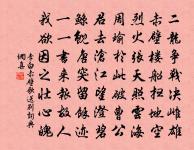 二龍爭戰決雌雄
赤壁樓船掃地空
烈火張天照雲海
周瑜於此破曹公
君去滄江望澄碧
鯨鯢唐突留餘跡
一一書來報故人
我欲因之壯心魄
李白赤壁歌送别詞典
網喜